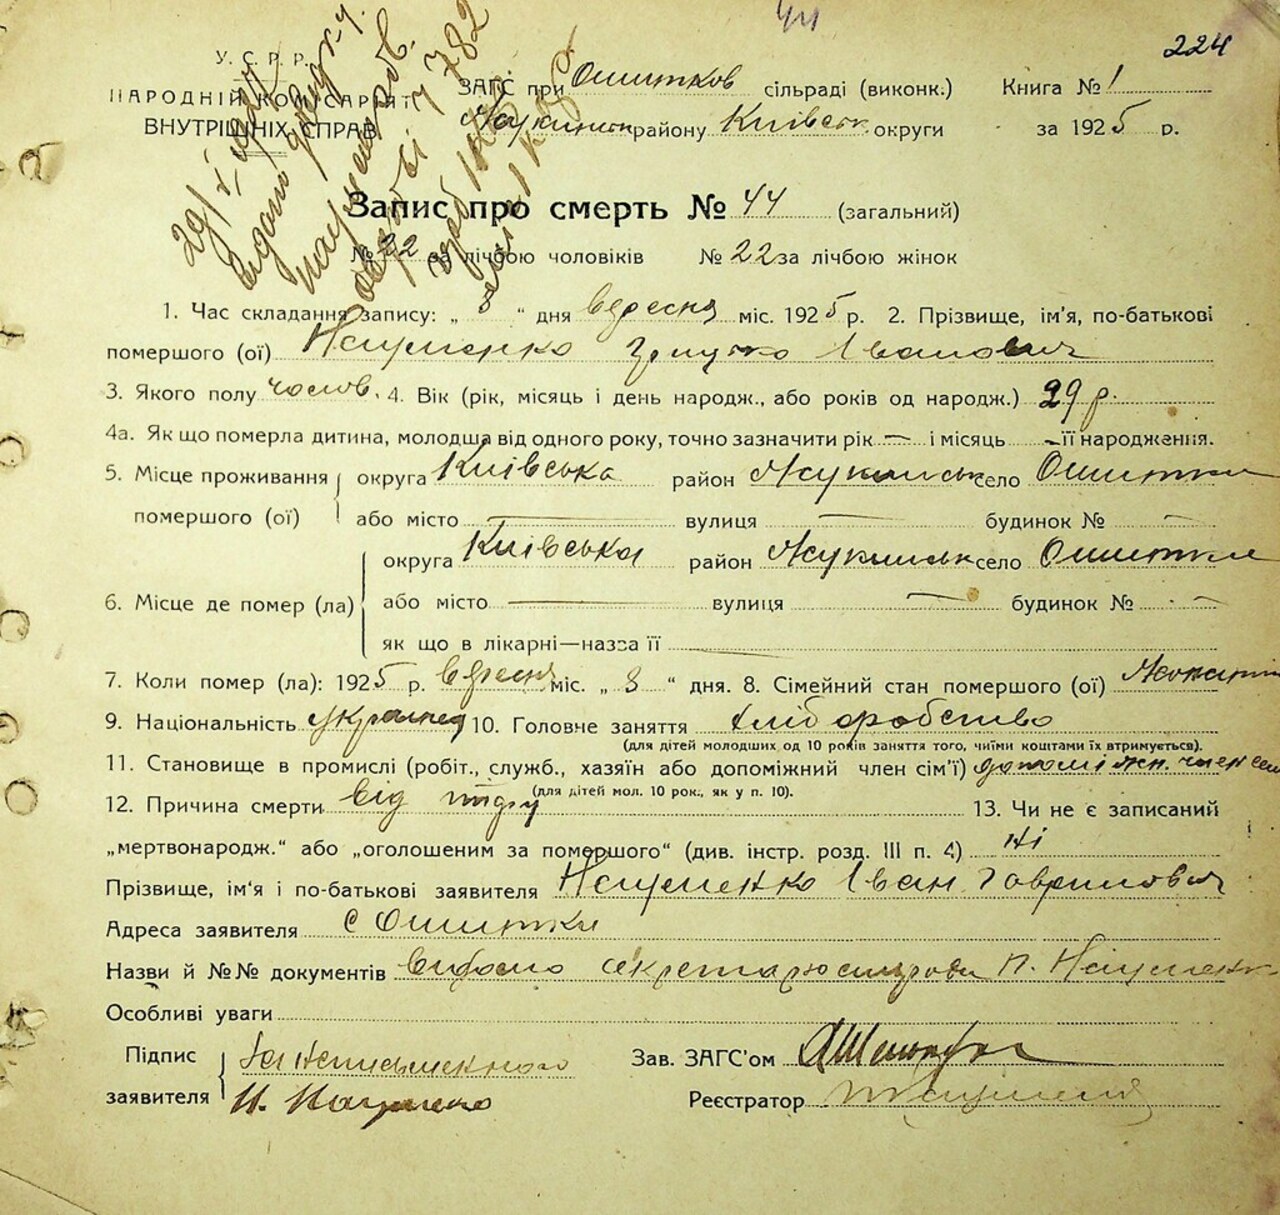 224
У. С. Р. Р.
НАРОДНІЙ КОМІСАРІЯТ
ВНУТРІШНІХ СПРАВ
ЗАГС при Ошитков сільраді (виконк.) Книга № 1
району Київськ округи за 1925 р.
Запис про смерть № 44 (загальний)
№ 22 за лічбою чоловіків № 22 за лічбою жінок
1. Час складання запису: „ 8 “ дня вересня міс. 1925 р. 2. Прізвище, ім’я, по-батькові
помершого (ої) Науменко Іванович
3. Якого полу чолов. 4. Вік (рік, місяць і день народж., або років од народж.) 29 р.
4а. Як що померла дитина, молодша від одного року, точно зазначити рік — і місяць — її народження.
5. Місце проживання округа Київська район село Ошитки
помершого (ої) або місто — вулиця — будинок № —
округа Київська район село Ошитки
6. Місце де помер (ла) або місто — вулиця — будинок № —
як що в лікарні—назва її
7. Коли помер (ла): 1925 р. вересня міс. „ 8 “ дня. 8. Сімейний стан помершого (ої)
9. Національність українец 10. Головне заняття хліборобство
(для дітей молодших од 10 років заняття того, чиїми коштами їх втримується).
11. Становище в промислі (робіт., служб., хазяїн або допоміжний член сім’ї) допоміжн. член сем
(для дітей мол. 10 рок., як у п. 10).
12. Причина смерті від 13. Чи не є записаний
„мертвонародж.“ або „оголошеним за помершого“ (див. інстр. розд. III п. 4) Ні
Прізвище, ім’я і по-батькові заявителя Науменко Іван Гаврилович
Адреса заявителя с Ошитки
Назви й №№ документів Науменк
Особливі уваги
Підпис За неписьменного Зав. ЗАГС’ом
заявителя Н. Науменко Реєстратор